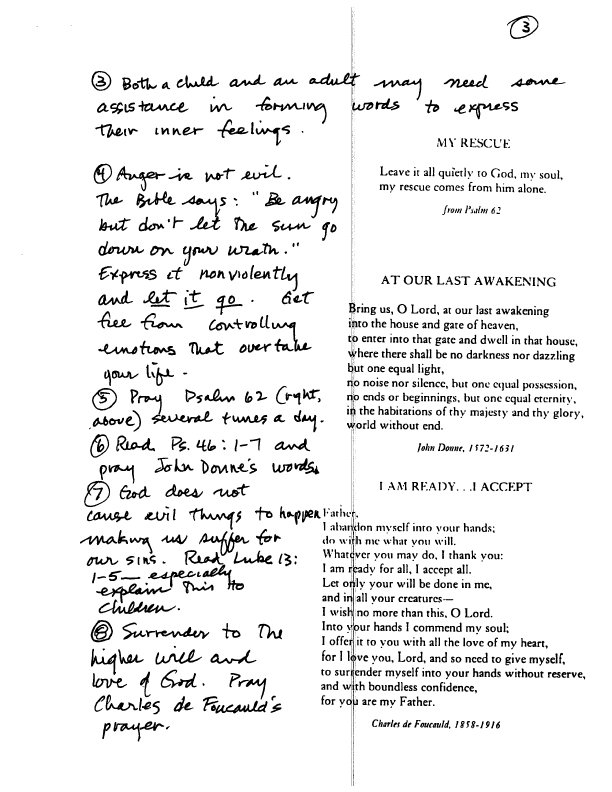 3
③ Both a child and an adult may need some
assistance in forming words to express
their inner feelings.
④ Anger is not evil.
The Bible says: "Be angry
but don't let the sun go
down on your wrath."
Express it nonviolently
and let it go. Get
free from controlling
emotions that overtake
your life.
⑤ Pray Psalm 62 (right,
above) several times a day.
⑥ Read Ps. 46:1-7 and
pray John Donne's words.
⑦ God does not
cause evil things to happen
making us suffer for
our sins. Read Luke 13:
1-5 — especially
explain this to
children.
⑧ Surrender to the
higher will and
love of God. Pray
Charles de Foucauld's
prayer.
MY RESCUE
Leave it all quietly to God, my soul,
my rescue comes from him alone.
from Psalm 62
AT OUR LAST AWAKENING
Bring us, O Lord, at our last awakening
into the house and gate of heaven,
to enter into that gate and dwell in that house,
where there shall be no darkness nor dazzling
but one equal light,
no noise nor silence, but one equal possession,
no ends or beginnings, but one equal eternity,
in the habitations of thy majesty and thy glory,
world without end.
John Donne, 1572-1631
I AM READY. . .I ACCEPT
Father,
I abandon myself into your hands;
do with me what you will.
Whatever you may do, I thank you:
I am ready for all, I accept all.
Let only your will be done in me,
and in all your creatures—
I wish no more than this, O Lord.
Into your hands I commend my soul;
I offer it to you with all the love of my heart,
for I love you, Lord, and so need to give myself,
to surrender myself into your hands without reserve,
and with boundless confidence,
for you are my Father.
Charles de Foucauld, 1858-1916